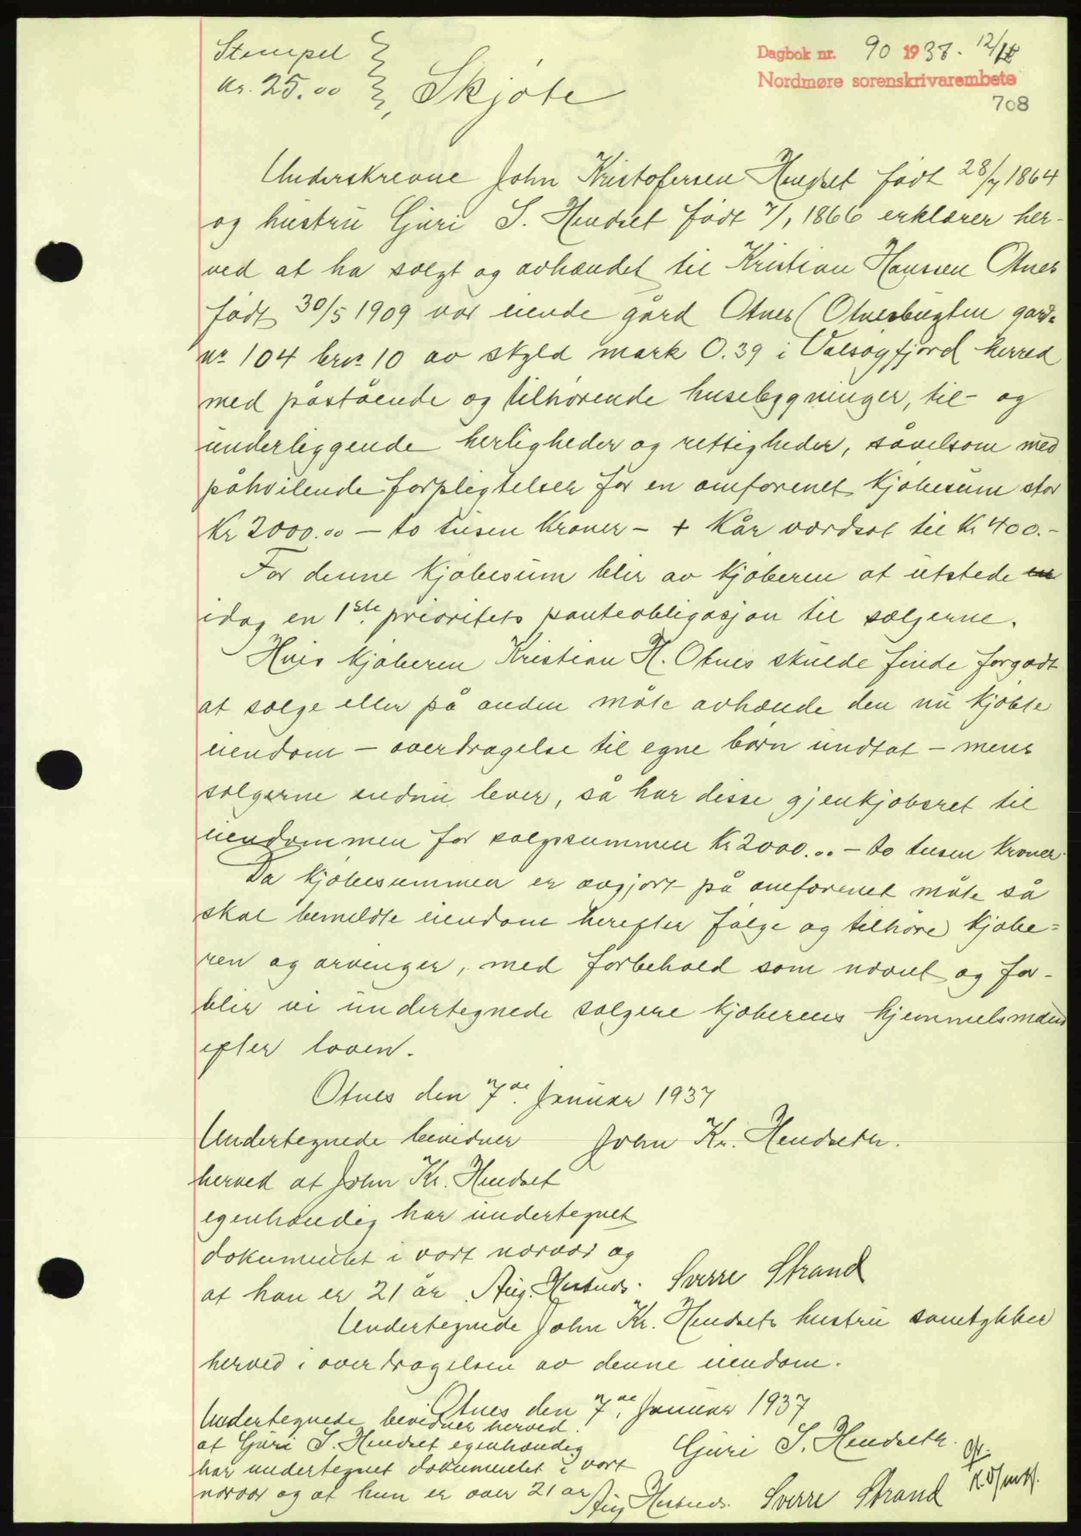 Stempel
kr. 25.00
Skjøte
Dagbok nr. 90 1937. 12/1
Nordmøre sorenskrivarembete
708
Underskrevne John Kristofersen Hendset født 28/7 1864
og hustru Guri S. Hendset født 7/1 1866 erklærer her-
ved at ha solgt og avhændet til Kristian Hansen Otnes
født 30/5 1909 vor eiende gård Otnes (Otnesbugten gards
nr. 104 brnr. 10 av skyld mark 0.39 i Valsøyfjord herred
med påstående og tilhørende husebygninger, til- og
underliggende herligheder og rettigheder, såvelsom med
påhvilende forpligtelser for en omforenet kjøbesum stor
Kr 2000.00 - to tusen kroner - + kår værdsat til Kr 400.-
For denne kjøbesum blir av kjøberen at utstede en
idag en 1ste prioritets panteobligasjon til sælgerne.
Hvis kjøberen Kristian H. Otnes skulde finde forgodt
at sælge eller på anden måte avhænde den nu kjøbte
eiendom - overdragelse til egne børn undtat - mens
sælgerne endnu lever, så har disse gjenkjøbsret til
eiendommen for salgssummen Kr 2000.00 - to tusen kroner
Da kjøbesummen er avgjort på omforenet måte så
skal bemeldte eiendom herefter følge og tilhøre kjøbe-
ren og arvinger, med forbehold som nævnt og for-
blir vi undertegnede sælgere kjøberens hjemmelsmænd
efter loven.
Otnes den 7de Januar 1937
Undertegnede bevidner John Kr. Hendseth.
herved at John Kr. Hendset
egenhændig har undertegnet
dokumentet i vort nærvær og
at han er 21 år Sverre Strand
Undertegnede John Kr. Hendsets hustru samtykker
herved i overdragelsen av denne eiendom.
Otnes den 7de Januar 1937
Undertegnede bevidner herved
at Guri S. Hendset egenhændig Guri S. Hendseth.
har undertegnet dokumentet i vort
nærvær og at hun er over 21 år Sverre Strand